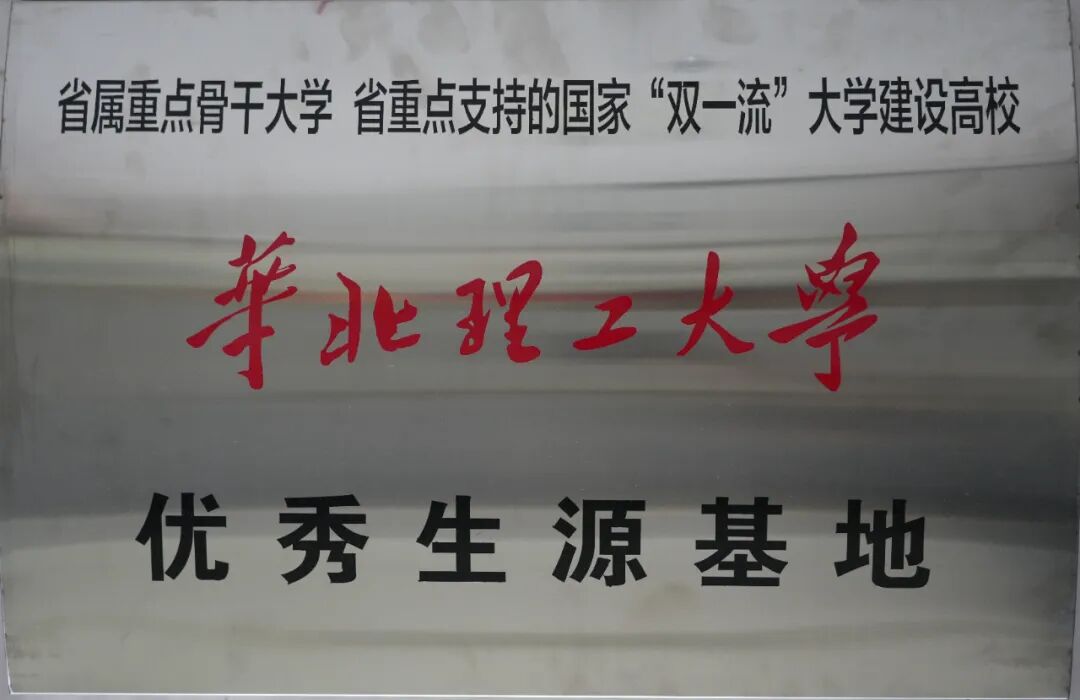 省属重点骨干大学 省重点支持的国家“双一流”大学建设高校
華北理工大學
优秀生源基地